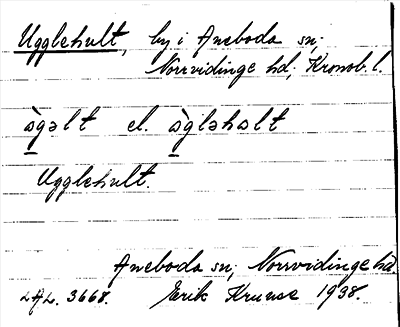 Ugglehult, by i Aneboda sn;
Norrvidinge hd; Kronob. l.
ògəlt el. ògləhəlt
Ugglehult.
Aneboda sn; Norrvidinge hd.
LAL. 3668. Erik Kruuse 1938.